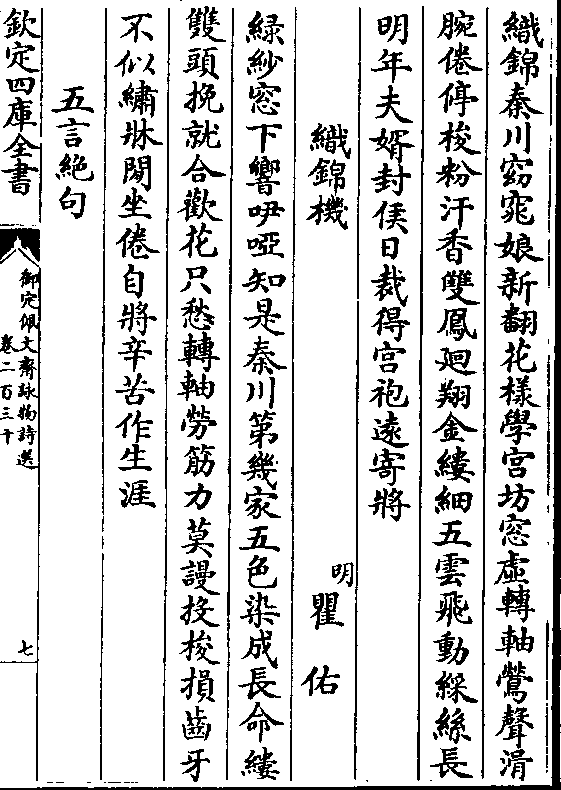 織錦秦川窈窕娘新翻花樣學宫坊窓虚轉軸鶯聲滑
腕倦停梭粉汗香雙鳳廻翔金縷細五雲飛動綵絲長
明年夫婿封侯日裁得宫袍遠寄將
織錦機
明瞿佑
緑紗窓下響咿啞知是秦川第幾家五色染成長命縷
雙頭挽就合歡花只愁轉軸勞筋力莫謾投梭損齒牙
不似繡牀閒坐倦自將辛苦作生涯
五言絶句
欽定四庫全書
御定佩文齋詠物詩選
卷二百三十
七